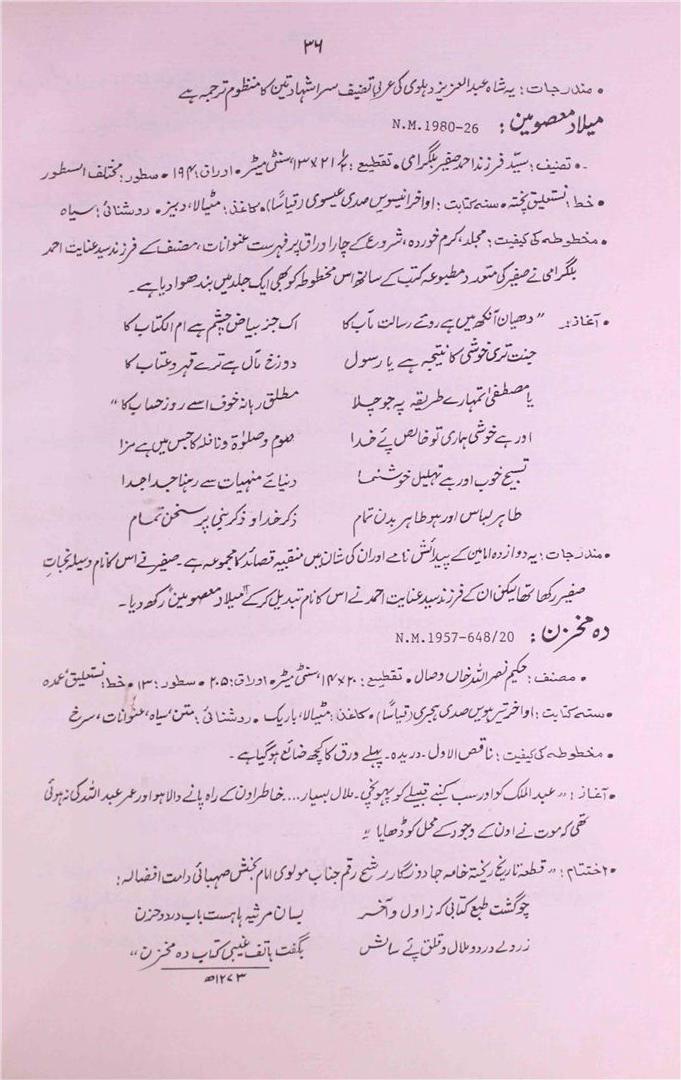 ۳۶
• مندرجات: یہ شاہ عبدالعزیز دہلوی کی عربی تصنیف سر الشہادتین کا منظوم ترجمہ ہے
میلاد معصومین: N.M.1980-26
۔• تصنیف: سیّد فرزند احمد صفیر بلگرامی • تقطیع: ۲۱/۲×۱۳ سنٹی میٹر • اوراق: ۱۹۴ • سطور: مختلف السطور
• خط: نستعلیق پختہ • سنہ کتابت: اواخر انیسویں صدی عیسوی (قیاسًا) • کاغذ: مٹیالا، دبیز • روشنائی: سیاہ
• مخطوطہ کی کیفیت: مجلد، کرم خوردہ، شروع کے چار اوراق پر فہرست عنوانات، مصنف کے فرزند سید عنایت احمد
بلگرامی نے صفیر کی متعدد مطبوعہ کتب کے ساتھ اس مخطوطہ کو بھی ایک جلد میں بندھوا دیا ہے۔
• آغاز: ”دھیان آنکھ میں ہے روئے رسالت مآب کا اک جز بیاض چشم ہے ام الکتاب کا
جنت تری خوشی کا نتیجہ ہے یا رسول دوزخ مآل ہے ترے قہر و عتاب کا
یا مصطفیٰ تمہارے طریقہ پہ جو چلا مطلق رہا نہ خوف اسے روز حساب کا“
اور ہے خوشی ہماری تو خالص پئے خدا صوم و صلوٰۃ و نافلہ کا جس میں ہے مزا
تسبیح خوب اور ہے تہلیل خوشنما دنیا کے منہیات سے رہنا جدا جدا
طاہر لباس اور ہو طاہر بدن تمام ذکر خدا و ذکر نبی پر سخن تمام
• مندرجات: یہ دوازدہ امامین کے پیدائش نامے اور ان کی شان میں منقبیہ قصائد کا مجموعہ ہے۔ صفیر نے اس کا نام وسیلہ نجات
صفیر رکھا تھا لیکن ان کے فرزند سید عنایت احمد نے اس کا نام تبدیل کر کے ”میلاد معصومین“ رکھ دیا۔
دہ مخزن: N.M.1957-648/20
• مصنف: حکیم نصر اللہ خاں وصال • تقطیع: ۲۰×۱۴ سنٹی میٹر • اوراق: ۲۰۵ • سطور: ۱۳ • خط: نستعلیق عمدہ
• سنہ کتابت: اواخر تیرہویں صدی ہجری (قیاسًا) • کاغذ: مٹیالا، باریک • روشنائی: متن، سیاہ، عنوانات، سرخ
• مخطوطہ کی کیفیت: ناقص الاول۔ دریدہ۔ پہلے ورق کا کچھ ضائع ہو گیا ہے۔
• آغاز: ”عبد الملک کو اور سب کنبے قبیلے کو پہونچی۔ ملال بسیار.... خاطر اون کے راہ پانے والا ہو اور عمر عبد اللہ کی نہ ہوئی
تھی کہ موت نے اون کے وجود کے محل کو ڈھایا“
• اختتام: ”قطعہ تاریخ ریختہ خامہ جادو نگار رشح رقم جناب مولوی امام بخش صہبائی دامت افضالہ:
چو گشت طبع کتابی کہ ز اول و آخر بسان مرثیہ ہاست باب درد و حزن
ز ردلے درد و ملال و قلق پئے سالش بگفت ہاتف غیبی کتاب دہ مخزن“
۱۲۷۳ھ